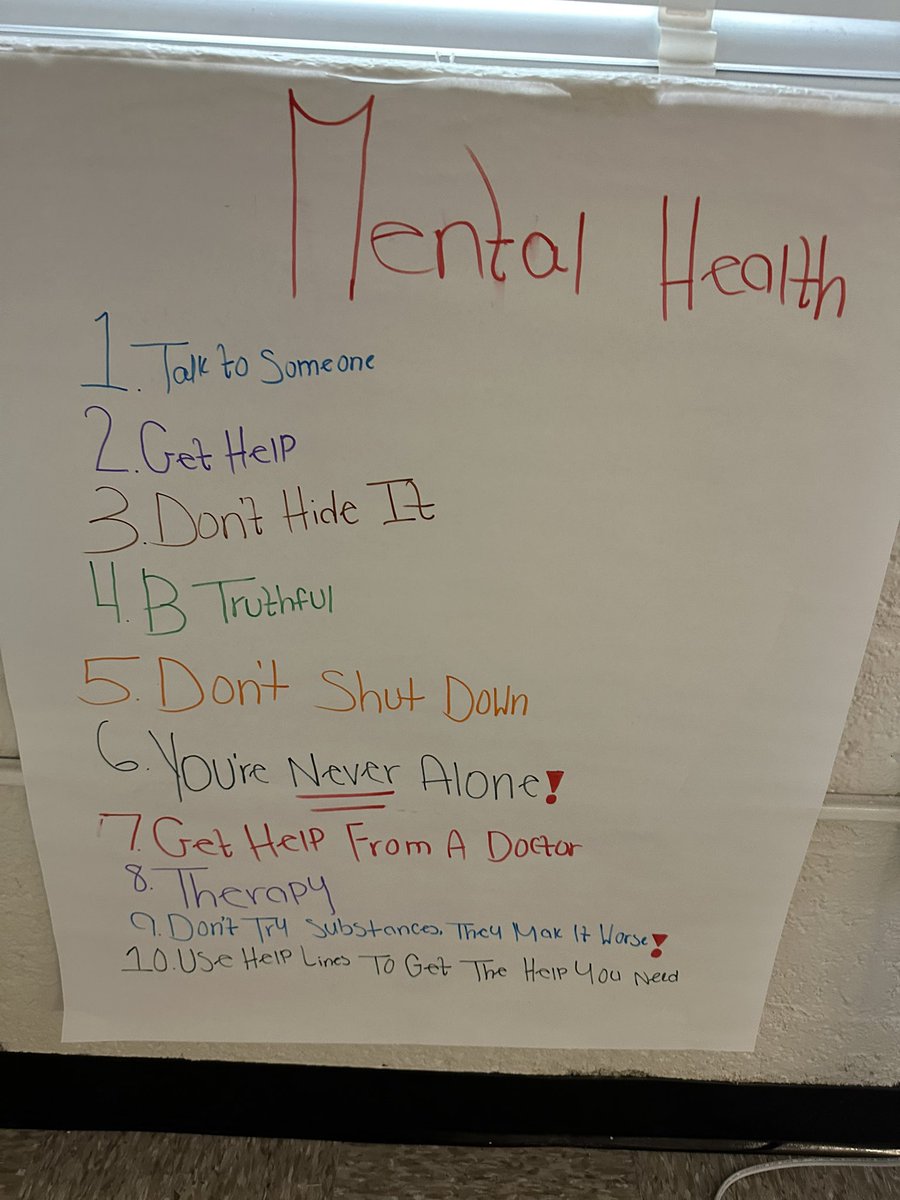 Mental Health
1. Talk to Someone
2. Get Help
3. Don't Hide It
4. B Truthful
5. Don't Shut Down
6. You're Never Alone!
7. Get Help From A Doctor
8. Therapy
9. Don't Try Substances. They Mak It Worse!
10. Use Help Lines To Get The Help You Need